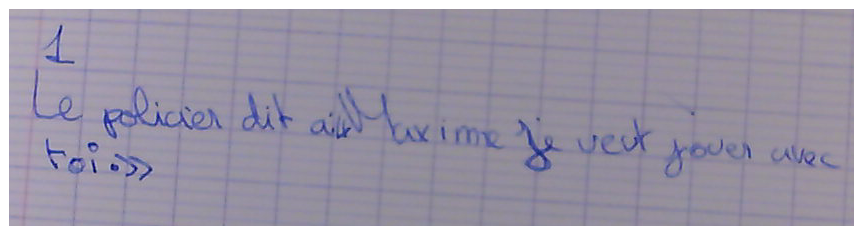 1
Le policier dit Maxime je veut jouer avec
toi.»